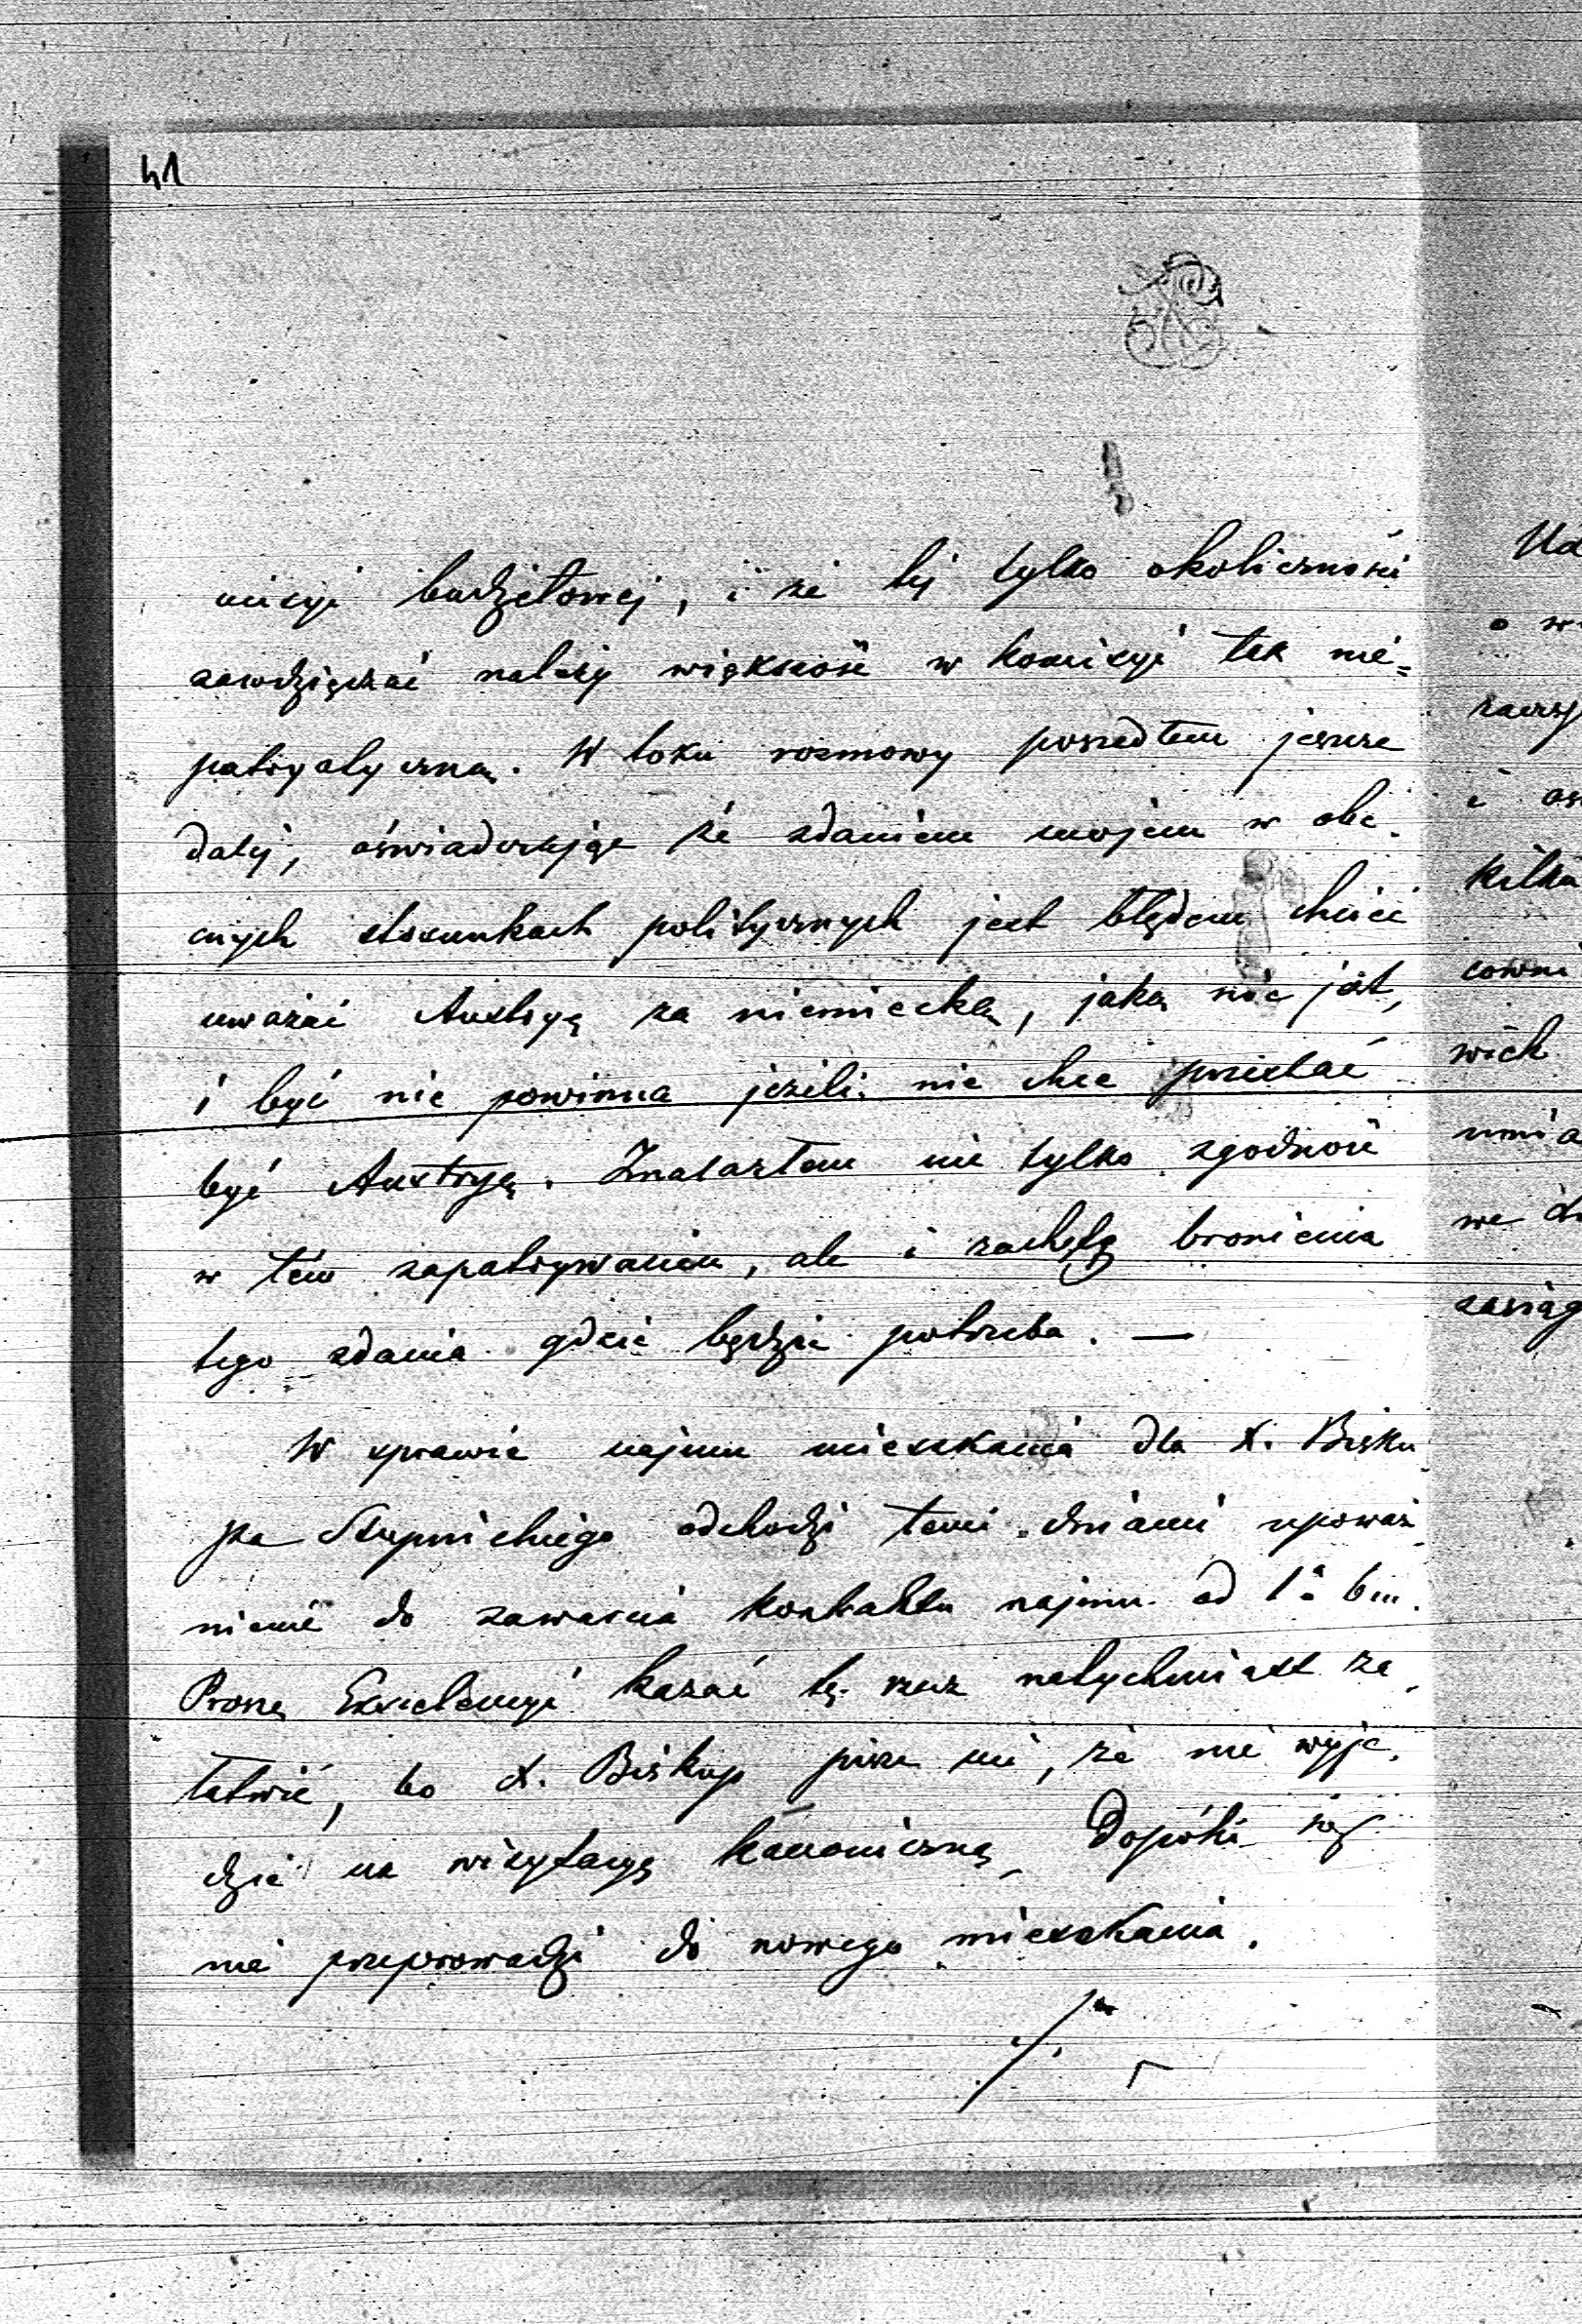 41
misyi budżetowej, i że tej tylko okoliczności
zawdzięczać należy większość w komisyi tak nie=
patryotyczną. W toku rozmowy poszedłem jeszcze
dalej, oświadczając że zdaniem mojem w obe-
cnych stosunkach politycznych jest błędem chcieć
uważać Austryę za niemiecką, jaką nie jest,
i być nie powinna jeżeli nie chce przestać
być Austryą. Znalazłem nie tylko zgodność
w tém zapatrywaniu, ale i zachętę bronienia
tego zdania gdzie będzie potrzeba. —
W sprawie najmu mieszkania dla X. Bisku-
pa Stupnickiego odchodzi temi dniami upoważ-
nienie do zawarcia kontraktu najmu od 1º bm.
Proszę Excelencyi kazać tę rzecz natychmiast za-
łatwić, bo X. Biskup pisze mi, że nie wyje-
dzie na wizytacyę kanoniczną, dopóki się
nie przeprowadzi do nowego mieszkania.
./.
o
i
kilka
wich
we